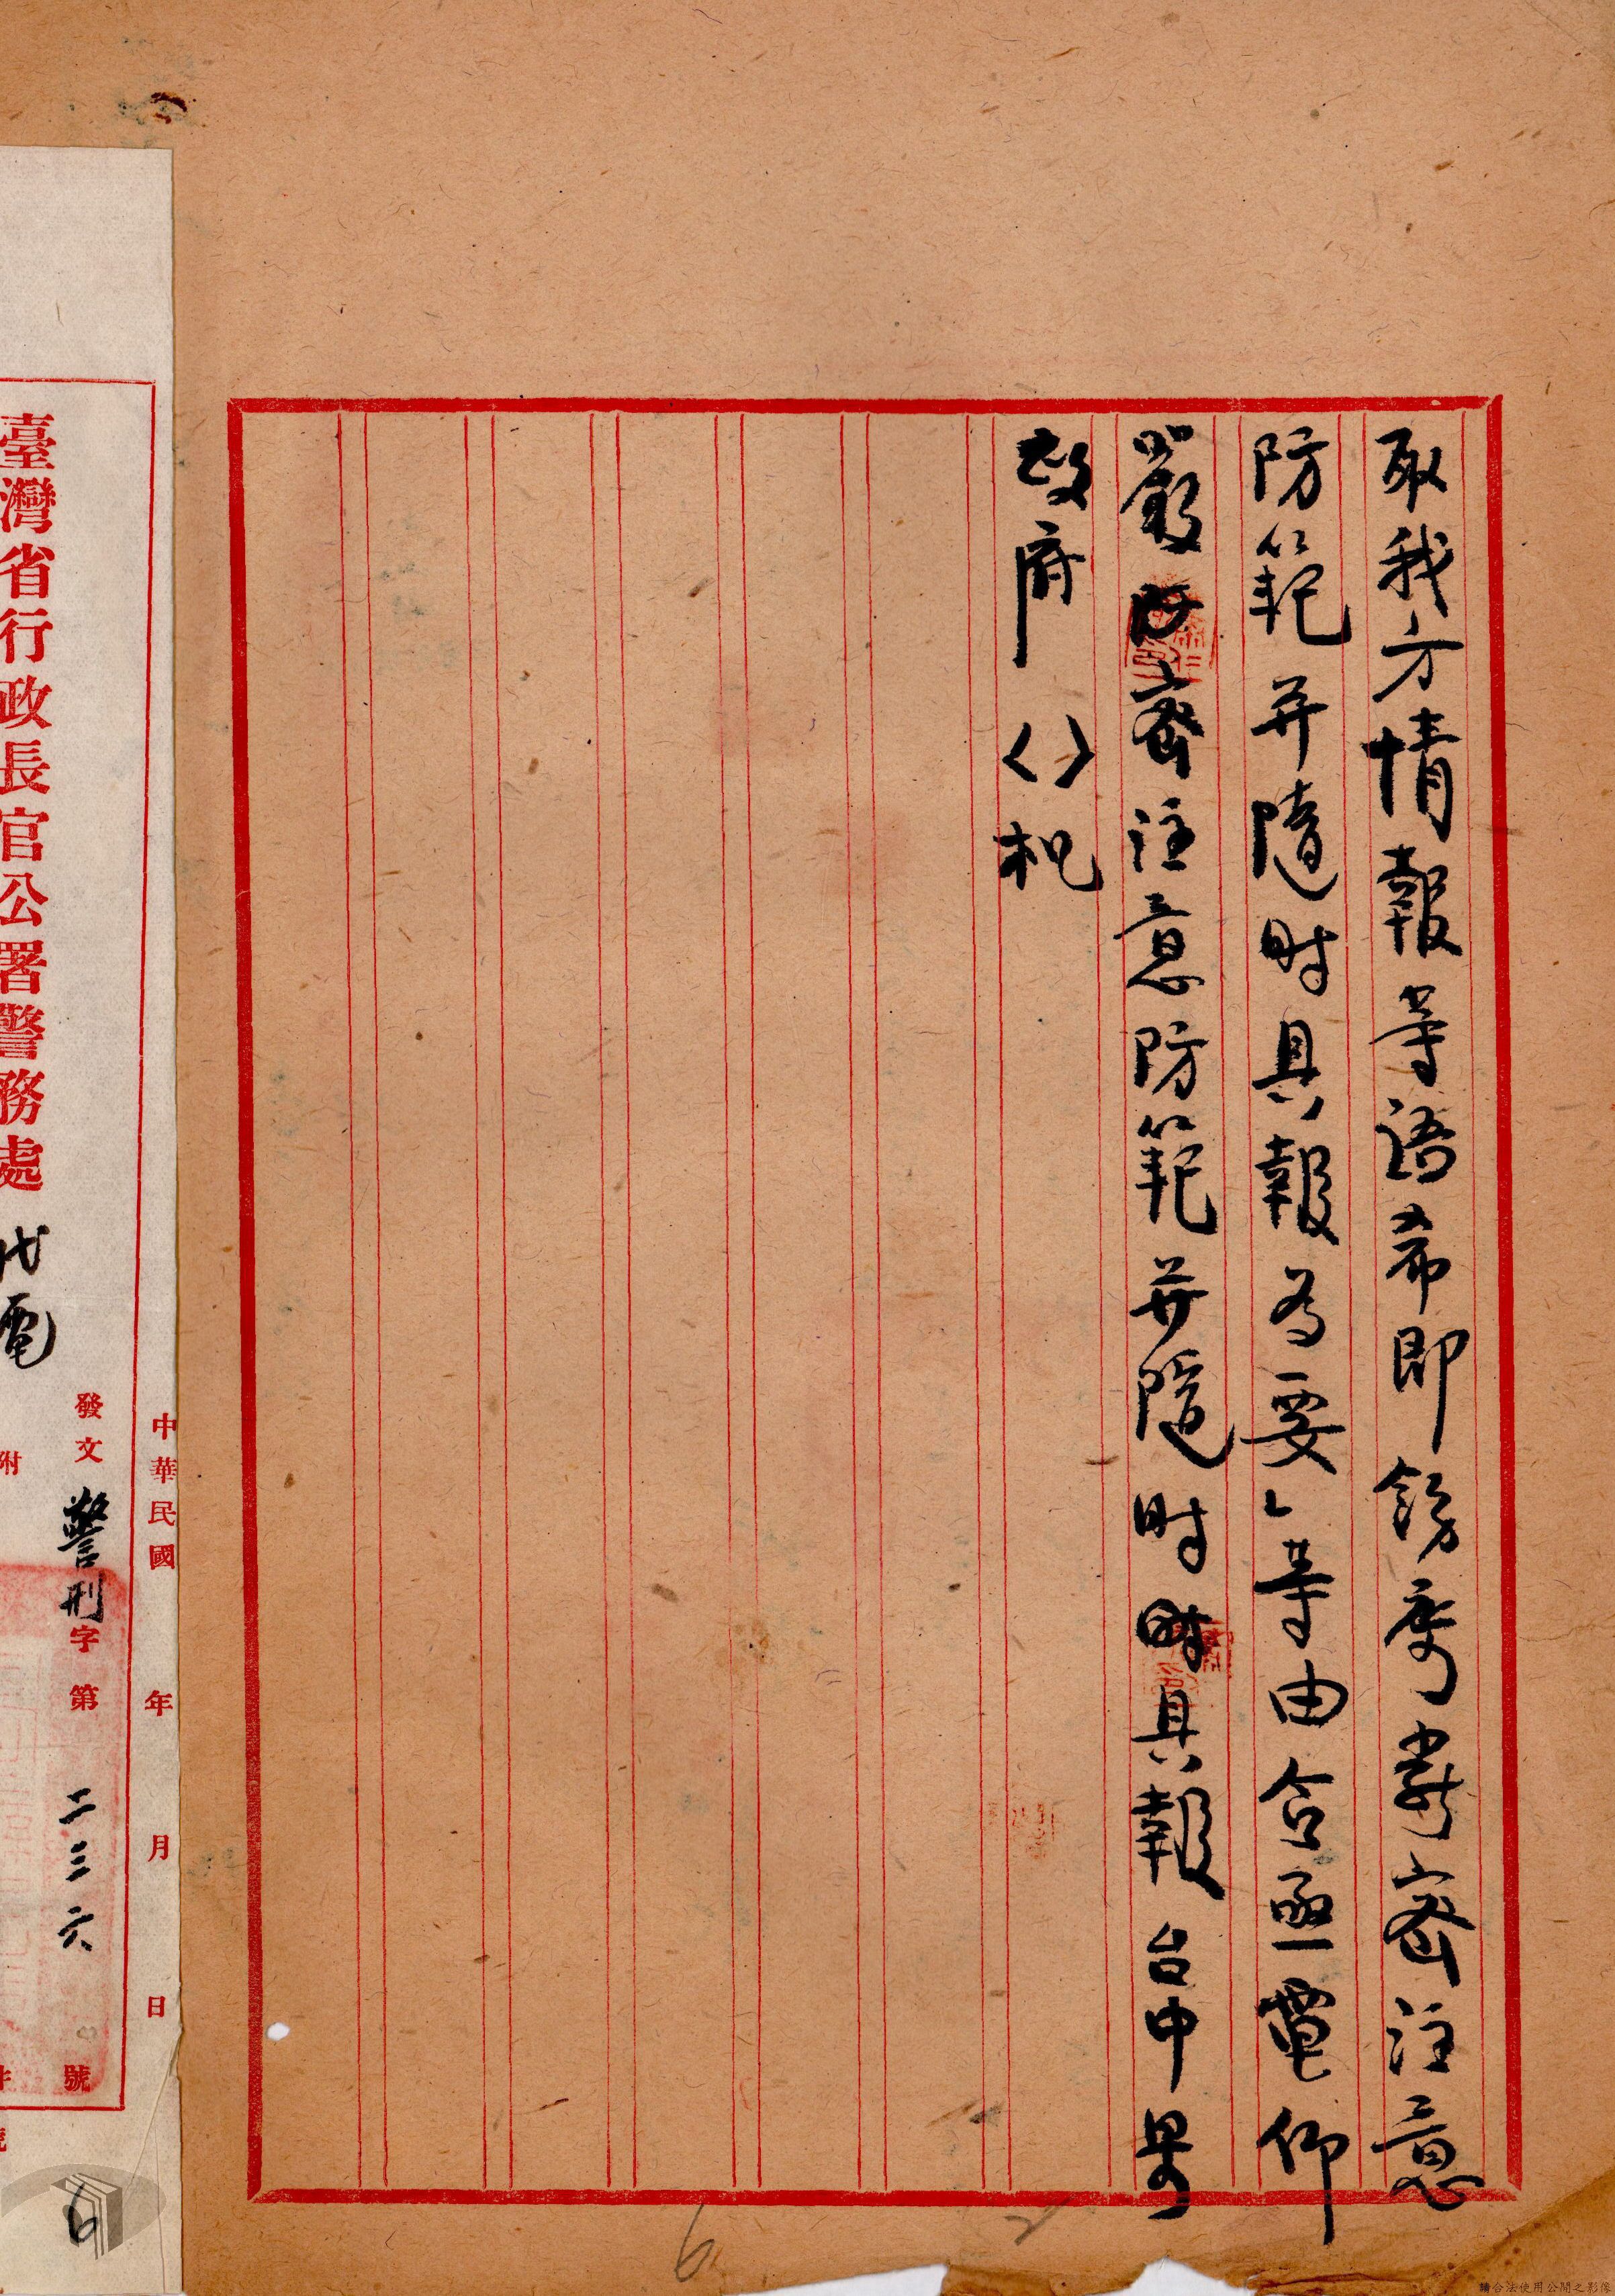 取我方情報等語希即飭屬嚴密注意
防範并隨時具報為要」等由合亟電仰
嚴防密注意防範并隨時時具報台中县
政府（）杞
中華民國　年　月　日
發文警刑字第二三六號
臺灣省行政長官公署警務處代電
附
件
號
6
6
2
請合法使用公開之影像